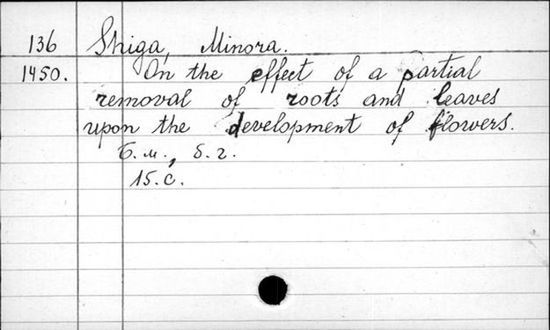 136 Shiga, Minora.
1450. On the effect of a partial
removal of roots and leaves
upon the development of flowers.
Б. м., б. г.
15. с.